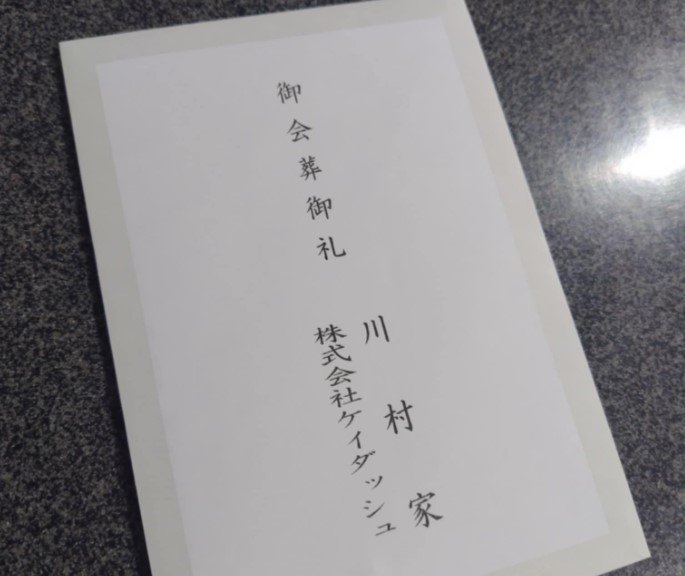 御会葬御礼
川村家
株式会社ケイダッシュ